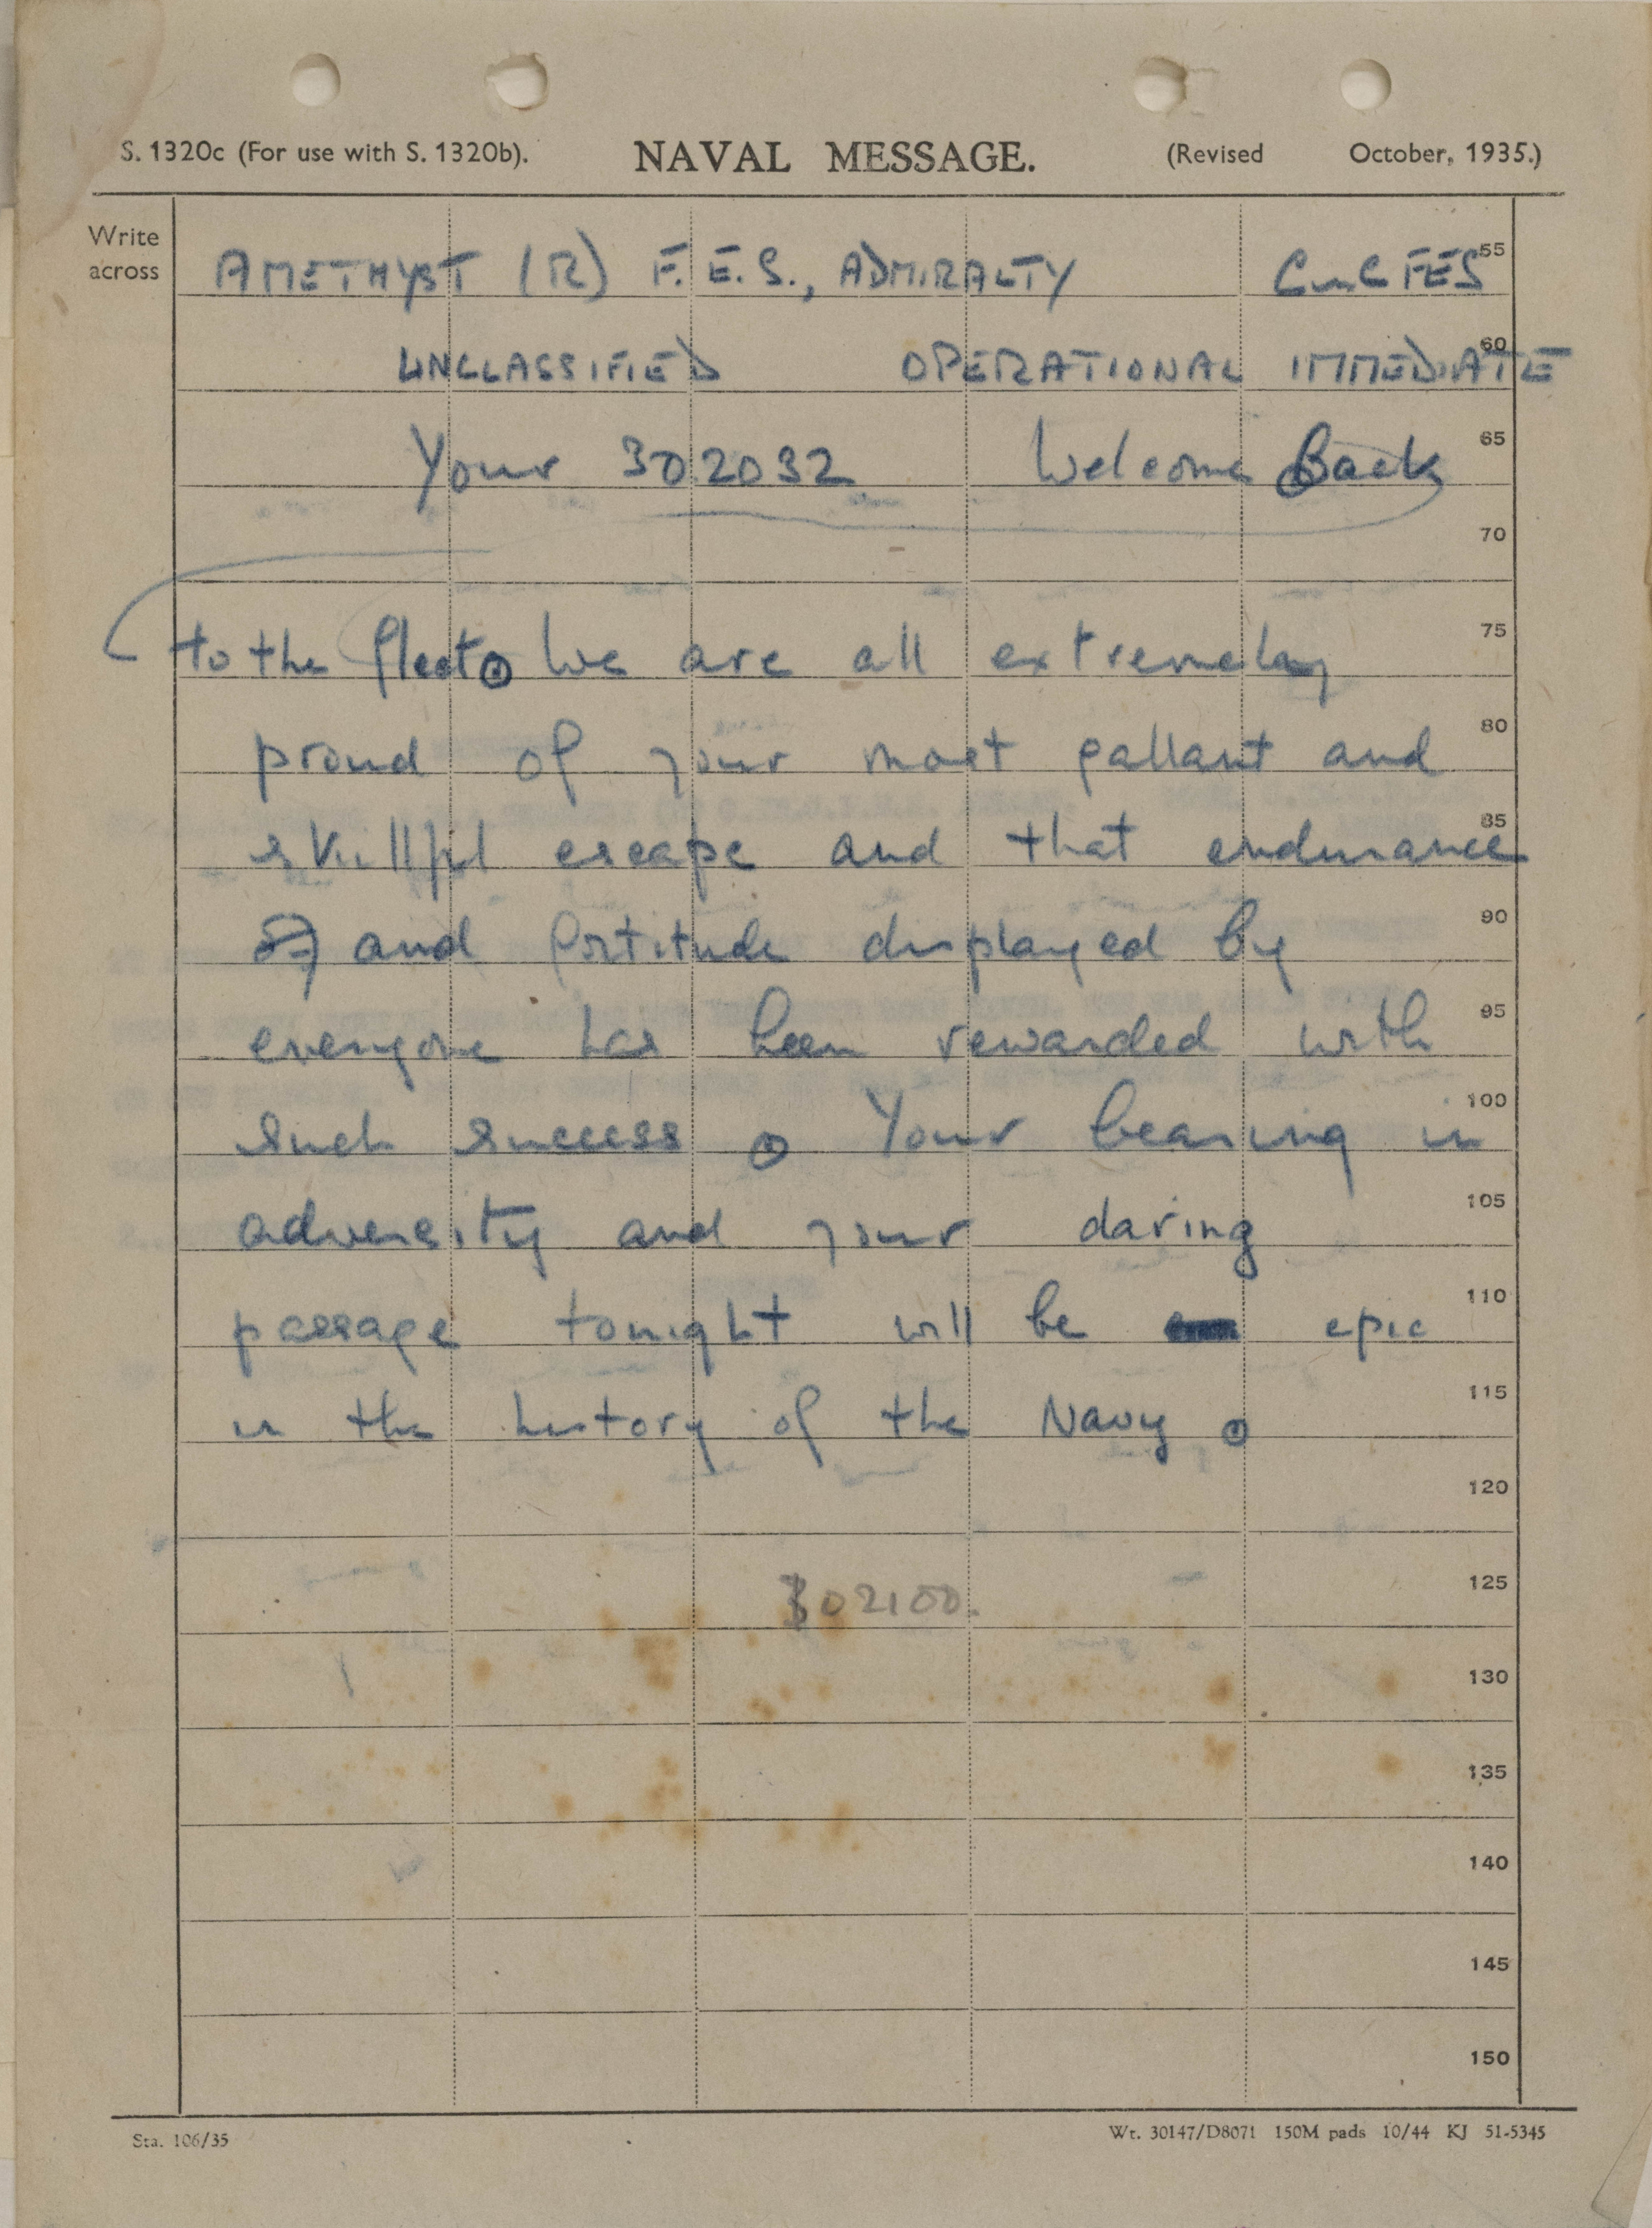 S. 1320c (For use with S. 1320b). NAVAL MESSAGE. (Revised October, 1935.)
Write across
AMETHYST (R) F.E.S., ADMIRALTY CinC FES 55
UNCLASSIFIED OPERATIONAL IMMEDIATE 60
Your 302032 Welcome Back 65
70
to the fleet ⊙ We are all extremely 75
proud of your most gallant and 80
skillful escape and that endurance 85
and fortitude displayed by 90
everyone has been rewarded with 95
such success ⊙ Your bearing in 100
adversity and your daring 105
passage tonight will be epic 110
in the history of the Navy ⊙ 115
120
302100. 125
130
135
140
145
150
Sta. 106/35 Wt. 30147/D8071 150M pads 10/44 KJ 51-5345